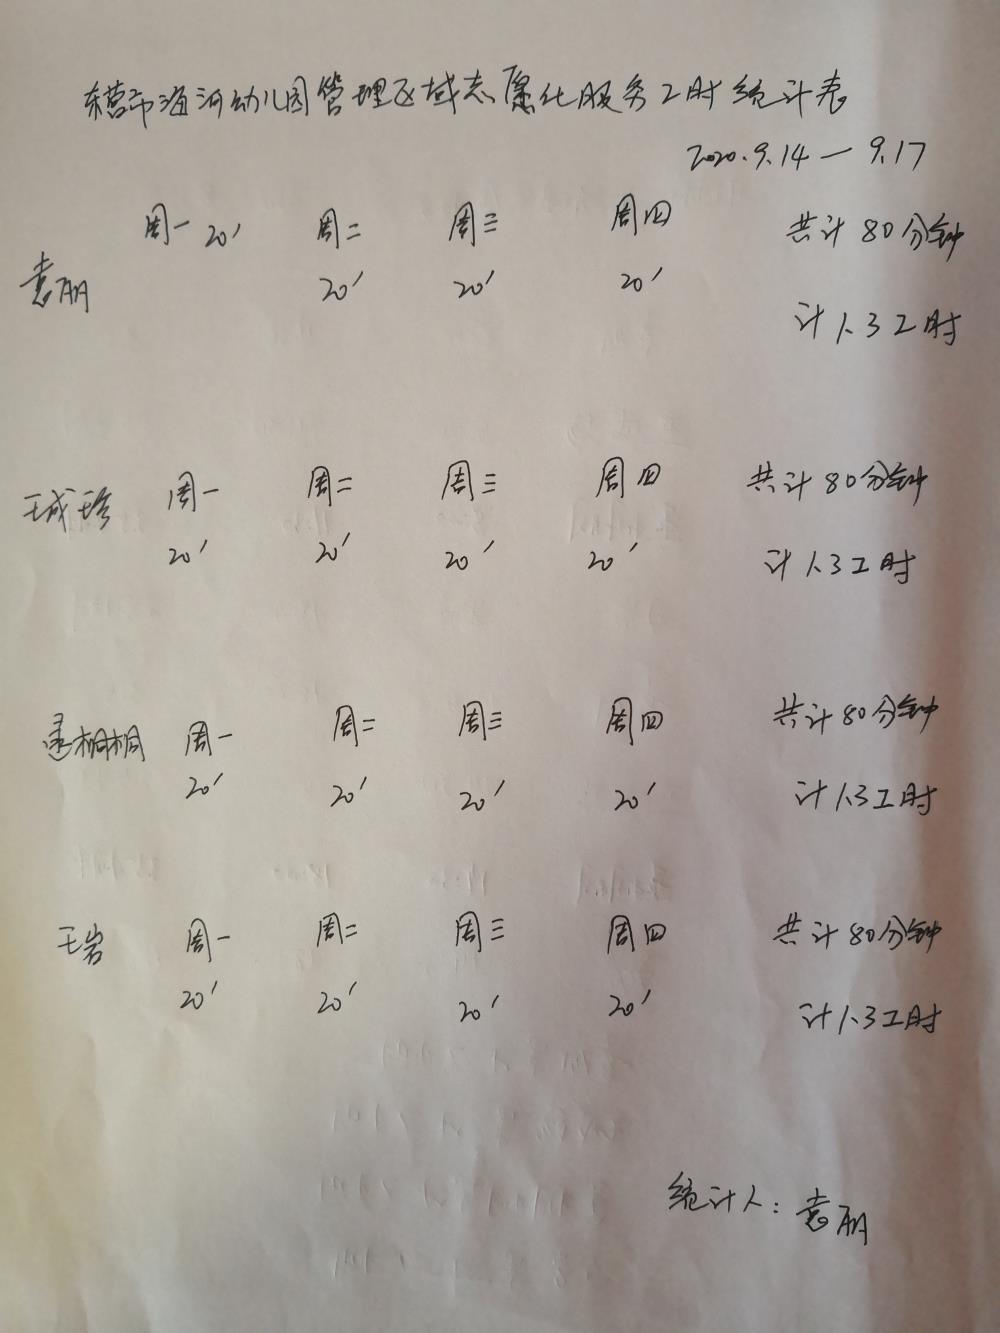 东营市海河幼儿园管理区域志愿化服务工时统计表
2020.9.14—9.17
周一 20′ 周二 周三 周四 共计80分钟
袁丽 20′ 20′ 20′
计1.3工时
王成珍 周一 周二 周三 周四 共计80分钟
20′ 20′ 20′ 20′ 计1.3工时
桐桐 周一 周二 周三 周四 共计80分钟
20′ 20′ 20′ 20′ 计1.3工时
王岩 周一 周二 周三 周四 共计80分钟
20′ 20′ 20′ 20′ 计1.3工时
统计人：袁丽